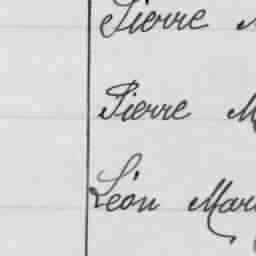 Pierre
Pierre M
Léon Mar